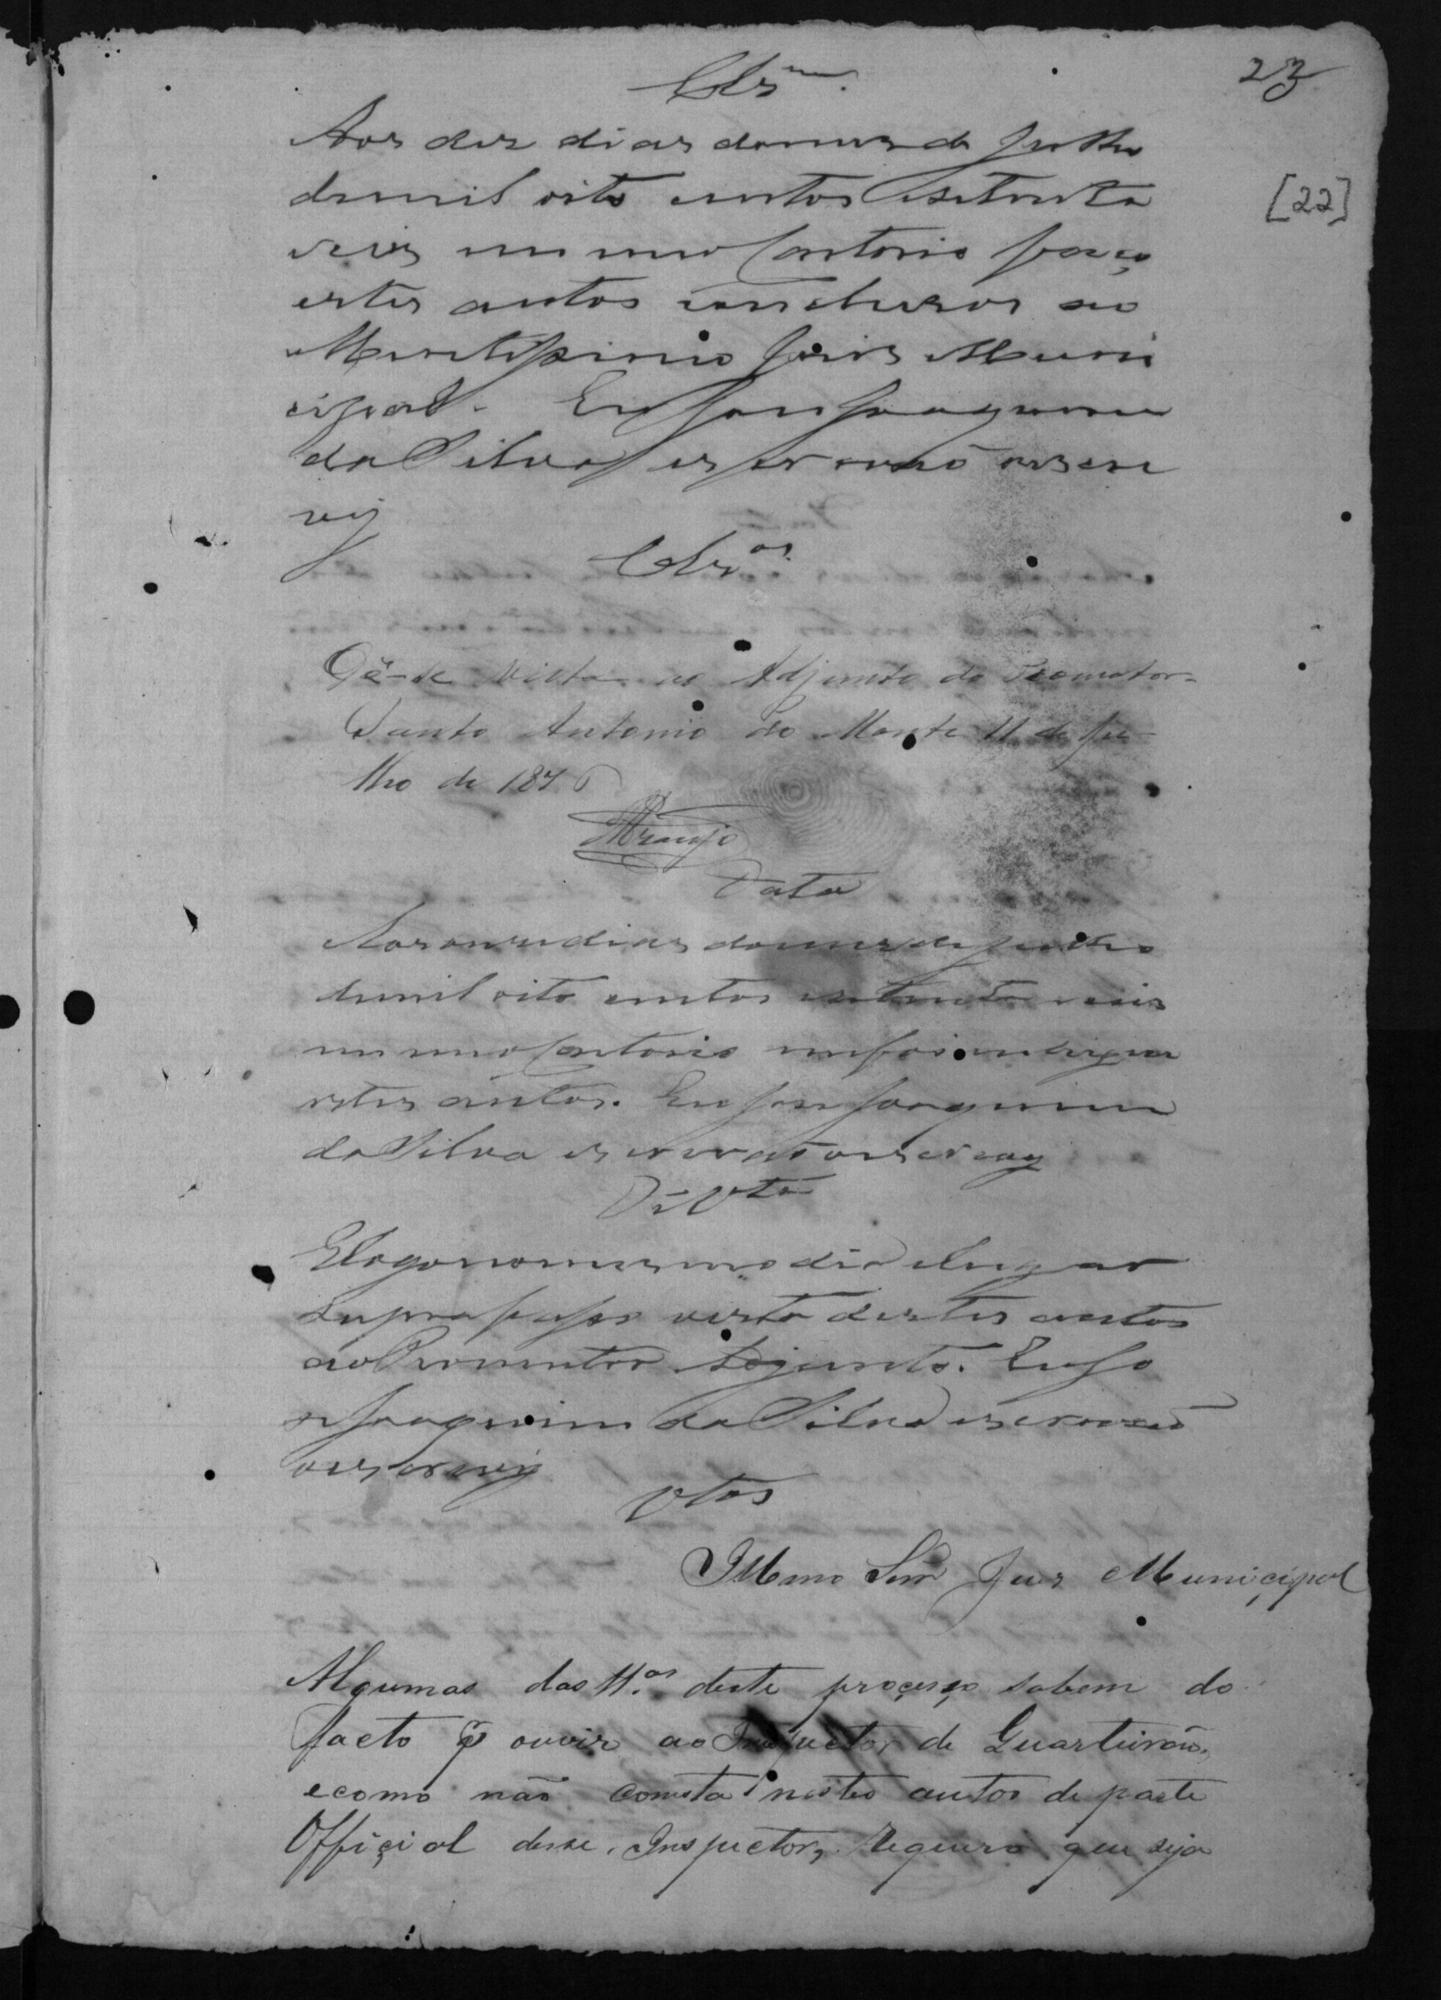 23
Clsm.
Aos des dias domes de Julho
demil oito centos esetenta
eseis em meo Cartorio faço
estes autos concluzos ao
Meretissimo Juis Muni
cipal. Eu Jose Joaquim
da Silva escrivaõ oescre
vy
[22]
Clsos.
Dê-se vista ao Adjunto do Promotor.
Santo Antonio do Monte 11 de Ju-
lho de 1876
Araujo
Data
Aos onse dias domes de Julho
demil oito centos esetenta eseis
em meo Cartorio me foi entregue
estes autos. Eu Jose Joaquim
da Silva escrivaõ oescrevy
Vista
Elogo nomesmo dia elugar
supra faço vista destes autos
ao Promotor Adjunto. Eu Jo
se Joaquim da Silva escrivaõ
oescrevy
Vtos
Illmo Snr Juis Municipal
Algumas das tt.as deste processo sabem do
facto p ouvir ao Inspector de Quarteirão,
ecomo não consta nestes autos de parte
Official desse Inspector, requeiro que seja